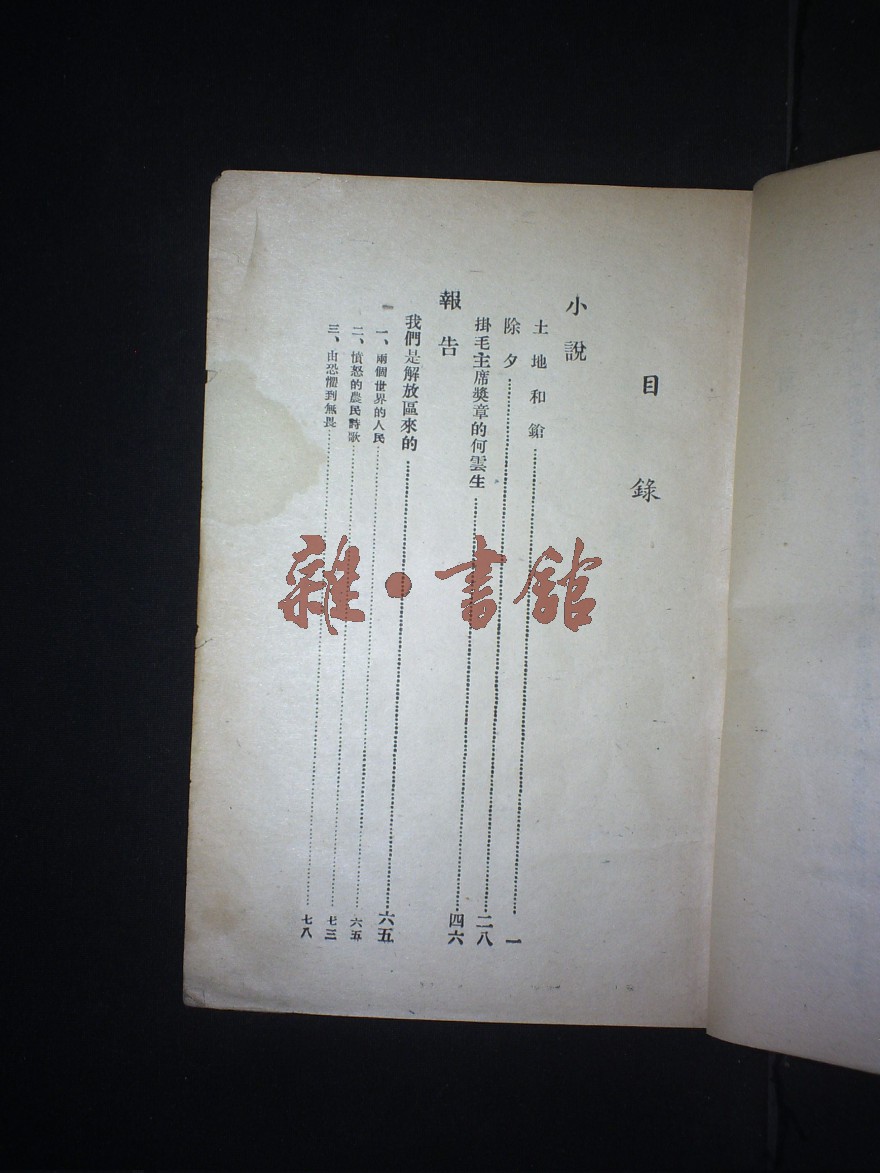 目錄
小說
土地和鎗……一
除夕……二八
掛毛主席獎章的何雲生……四六
報告
我們是解放區來的……六五
一、兩個世界的人民……六五
二、憤怒的農民詩歌……七三
三、由恐懼到無畏……七八
雜·書館